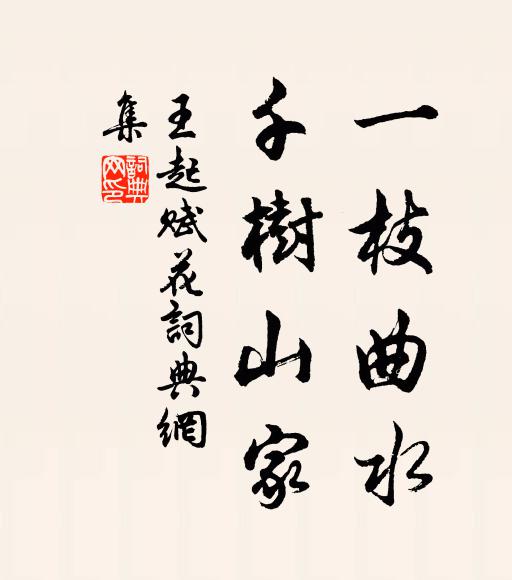 一枝曲水
千樹山家
王起賦花詞典網
集
詞典網印